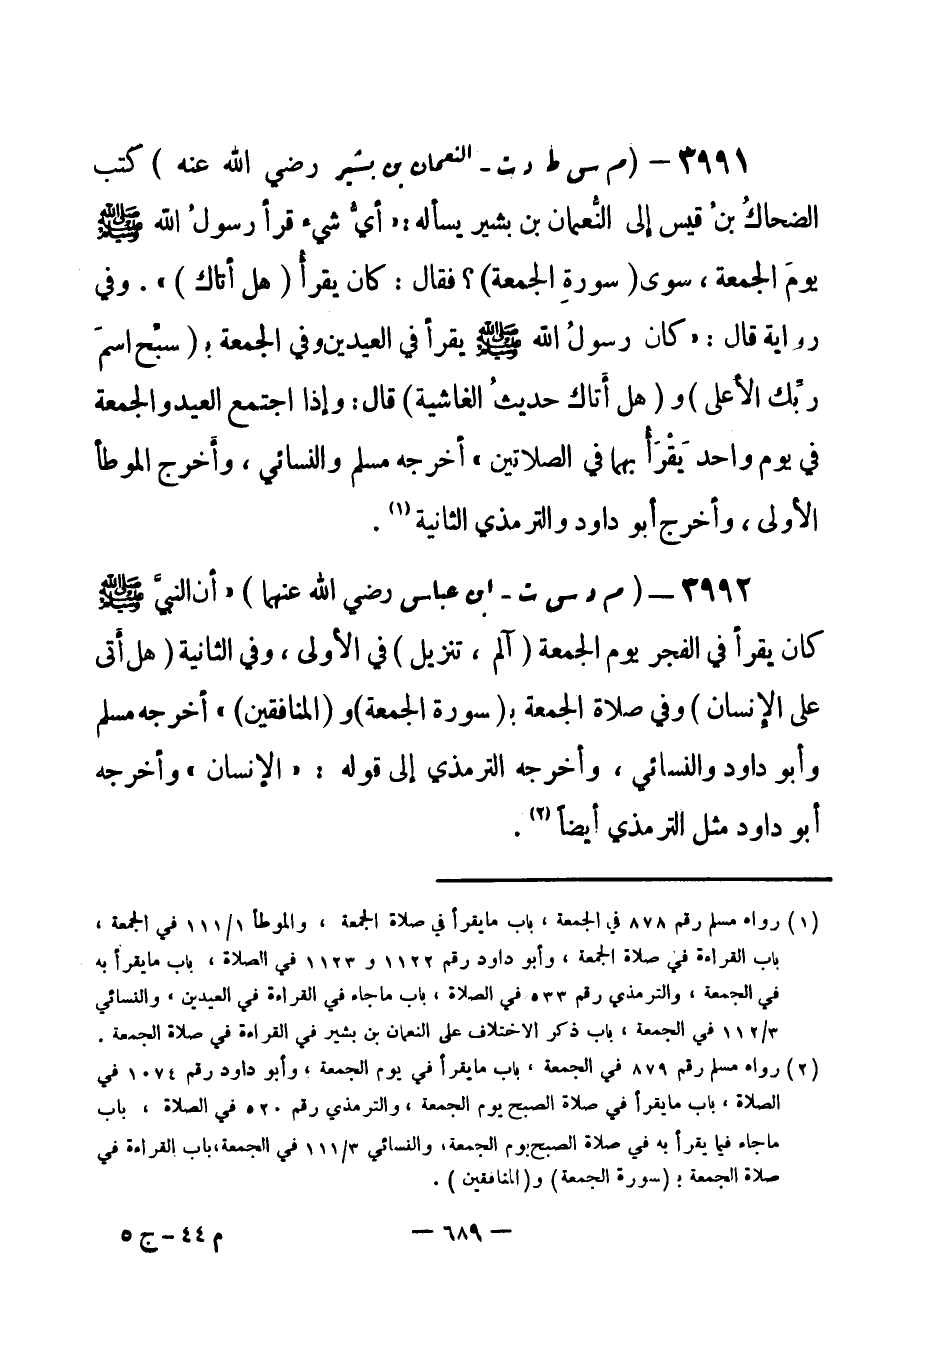 ٣٩٩١ – ( م س ط د ت - النعمان بن بشير رضي الله عنه ) كتب
الضحاكُ بنُ قيس إلى النُّعمان بن بشير يسأله : « أيُّ شيء قرأ رسولُ الله ﷺ
يومَ الجمعة ، سوى ( سورةِ الجمعة ) ؟ فقال : كان يقرأُ ( هل أتاك ) » . وفي
رواية قال : « كان رسولُ الله ﷺ يقرأ في العيدين وفي الجمعة بـ ( سبِّح اسمَ
ربِّك الأعلى ) و ( هل أتاك حديثُ الغاشية ) قال : وإذا اجتمع العيد والجمعة
في يوم واحد يَقْرَأُ بهما في الصلاتين » أخرجه مسلم والنسائي ، وأخرج الموطأ
الأولى ، وأخرج أبو داود والترمذي الثانية (١) .
٣٩٩٢ – ( م د س ت - ابن عباس رضي الله عنهما ) « أن النبيَّ ﷺ
كان يقرأ في الفجر يوم الجمعة ( آلم ، تنزيل ) في الأولى ، وفي الثانية ( هل أتى
على الإنسان ) وفي صلاة الجمعة بـ ( سورة الجمعة ) و ( المنافقين ) » أخرجه مسلم
وأبو داود والنسائي ، وأخرجه الترمذي إلى قوله : « الإنسان » وأخرجه
أبو داود مثل الترمذي أيضاً (٢) .
(١) رواه مسلم رقم ٨٧٨ في الجمعة ، باب ما يقرأ في صلاة الجمعة ، والموطأ ١١١/١ في الجمعة ،
باب القراءة في صلاة الجمعة ، وأبو داود رقم ١١٢٢ و ١١٢٣ في الصلاة ، باب ما يقرأ به
في الجمعة ، والترمذي رقم ٥٣٣ في الصلاة ، باب ماجاء في القراءة في العيدين ، والنسائي
١١٢/٣ في الجمعة ، باب ذكر الاختلاف على النعمان بن بشير في القراءة في صلاة الجمعة .
(٢) رواه مسلم رقم ٨٧٩ في الجمعة ، باب ما يقرأ في يوم الجمعة ، وأبو داود رقم ١٠٧٤ في
الصلاة ، باب ما يقرأ في صلاة الصبح يوم الجمعة ، والترمذي رقم ٥٢٠ في الصلاة ، باب
ماجاء فيما يقرأ به في صلاة الصبح يوم الجمعة ، والنسائي ١١١/٣ في الجمعة ، باب القراءة في
صلاة الجمعة بـ ( سورة الجمعة ) و ( المنافقين ) .
– ٦٨٩ – م ٤٤ – ج ٥